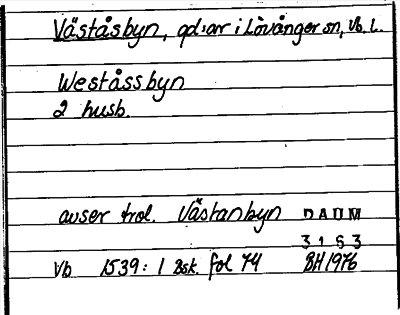 Våståsbyn, gd:ar i Lövånger sn, Vb. L.
Weståssbyn
2 husb.
avser trol. Västanbyn DAUM
3163
Vb 1539: 1 Bsk. fol 74 BH 1976